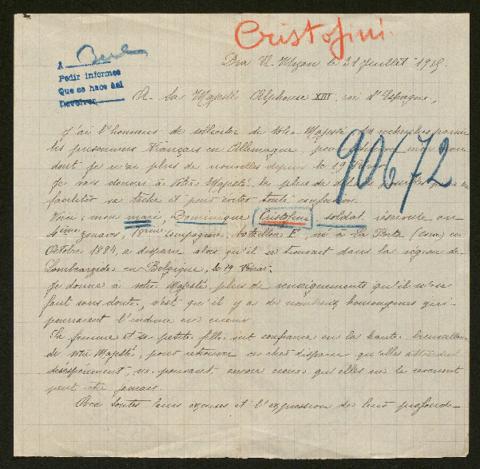 Cristofini.
A
Pedir informes
Que se hace así
Devolver
le 21 Juillet 1915.
A Sa Majesté Alphonse XIII, roi d'Espagne,
J'ai l'honneur de solliciter de Votre Majesté, recherches parmi
les prisonniers Français en Allemagne, pour
dont je n'ai plus de nouvelles depuis le
90672
Je vais donner à Votre Majesté, le plus de
faciliter sa tâche et pour éviter toute confusion.
mon mari, Dominique Cristofini soldat réserviste au
4ème zouaves, compagnie, bataillon E, né à La Porta (Corse) en
Octobre 1884, a disparu alors qu'il se trouvait dans la région de
Lombardzyde en Belgique, le 19
Je donne à votre Majesté plus de renseignements qu'il n'en
faut sans doute, c'est qu'il y a de nombreux homonymes qui
pourraient l'induire en erreur.
Sa femme et sa petite fille ont confiance en la haute bienveillance
de votre Majesté, pour retrouver ce cher disparu qu'elles attendent
désespérément, ne pouvant encore croire qu'elles ne le reverront
peut être jamais.
Avec toutes leurs excuses et l'expression de leur profonde-